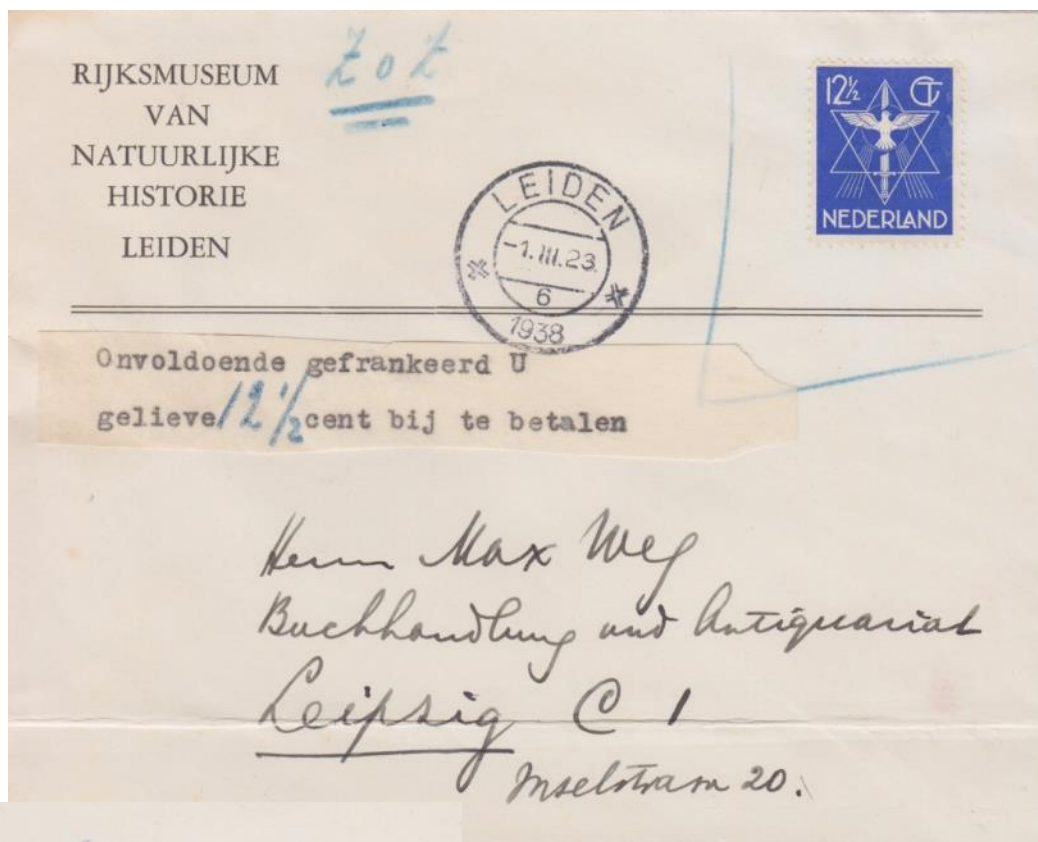 RIJKSMUSEUM
VAN
NATUURLIJKE
HISTORIE
LEIDEN
ZoZ
12½ CT
NEDERLAND
LEIDEN
-1.III.23.
6
1938
Onvoldoende gefrankeerd U
gelieve 12½ cent bij te betalen
Herrn Max Weg
Buchhandlung und Antiquariat
Leipzig C 1
Inselstrasse 20.